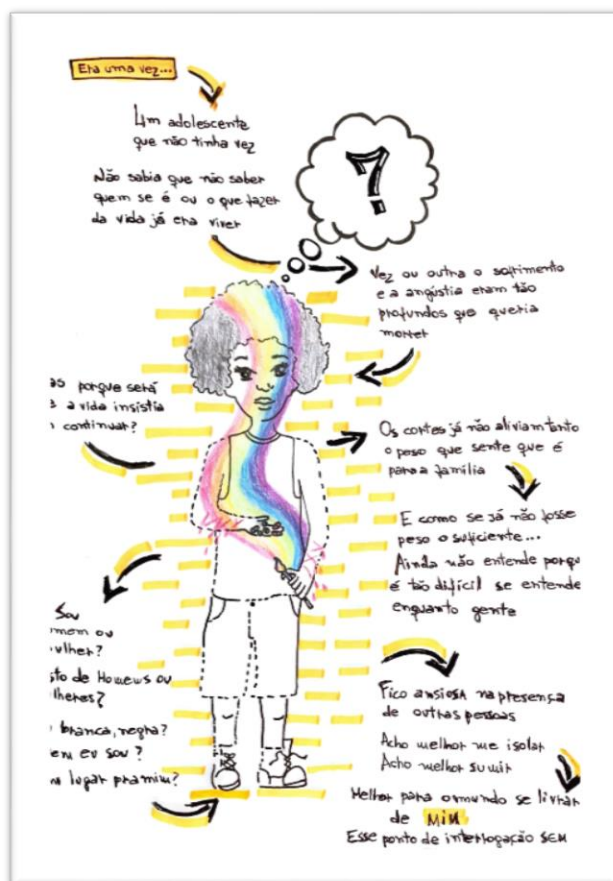 Era uma vez...
Um adolescente
que não tinha vez
Não sabia que não saber
quem se é ou o que fazer
da vida já era viver
?
Vez ou outra o sofrimento
e a angústia eram tão
profundos que queria
morrer
as porque será
a vida insistia
continuar?
Os cortes já não aliviam tanto
o peso que sente que é
para a família
E como se já não fosse
peso o suficiente...
Ainda não entende porqu
é tão difícil se entende
enquanto gente
Sou
mem ou
ulher?
sto de Homens ou
lheres?
branca, negra?
em eu sou?
lugar pra mim?
Fico ansiosa na presença
de outras pessoas
Acho melhor me isolar
Acho melhor sumir
Melhor para o mundo se livrar
de MIM
Esse ponto de interrogação SEM